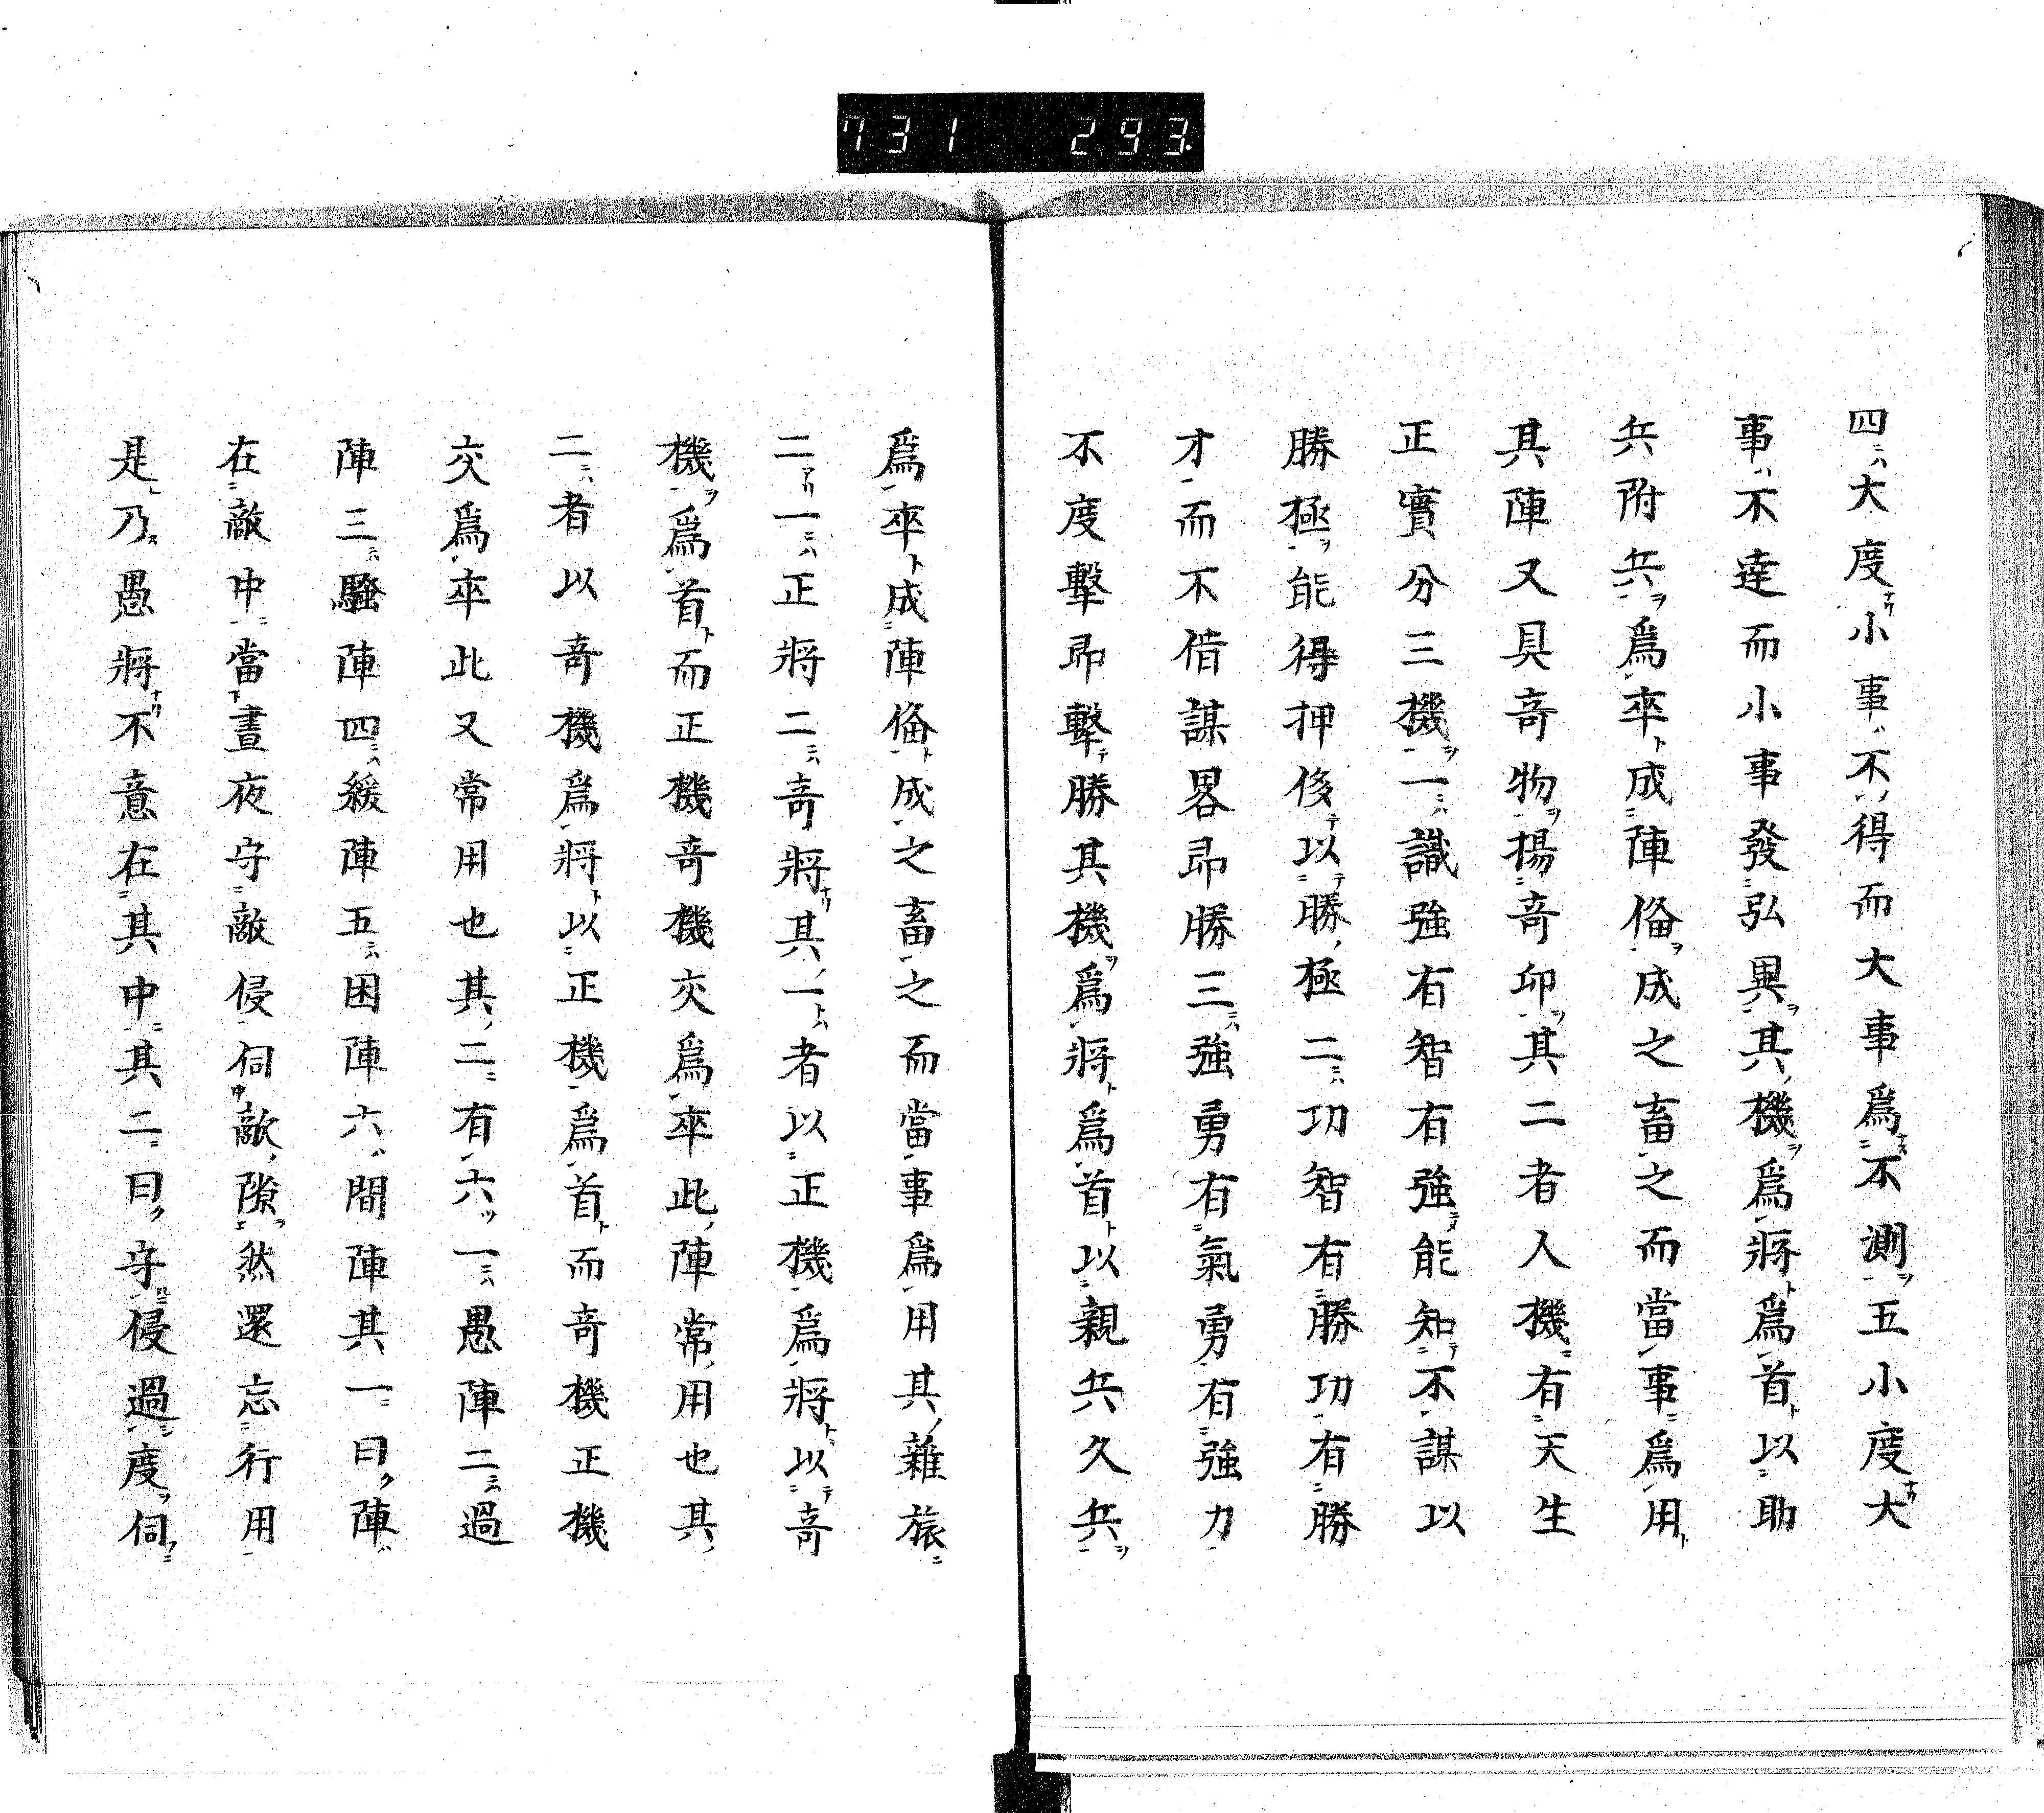 731 293
四大度小事不得而大事爲不測五小度大
事不達而小事發弘異其機爲將爲首以助
兵附兵爲卒成陣偹成之畜之而當事爲用
其陣又具竒物揚竒印其二者人機有天生
正實分三機一識強有智有強能知不謀以
勝極能得押後以勝極二功智有勝功有勝
才而不借謀畧即勝三強勇有氣勇有強力
不度擊即擊勝其機爲將爲首以親兵久兵
爲卒成陣偹成之畜之而當事爲用其雜旅
二一正將二竒將其一者以正機爲將以竒
機爲首而正機竒機交爲卒此陣常用也其
二者以竒機爲將以正機爲首而竒機正機
交爲卒此又常用也其二有六一愚陣二過
陣三騷陣四緩陣五困陣六間陣其一曰陣
在敵中當晝夜守敵侵伺敵隙然還忘行用
是乃愚將不意在其中其二曰守侵過度伺